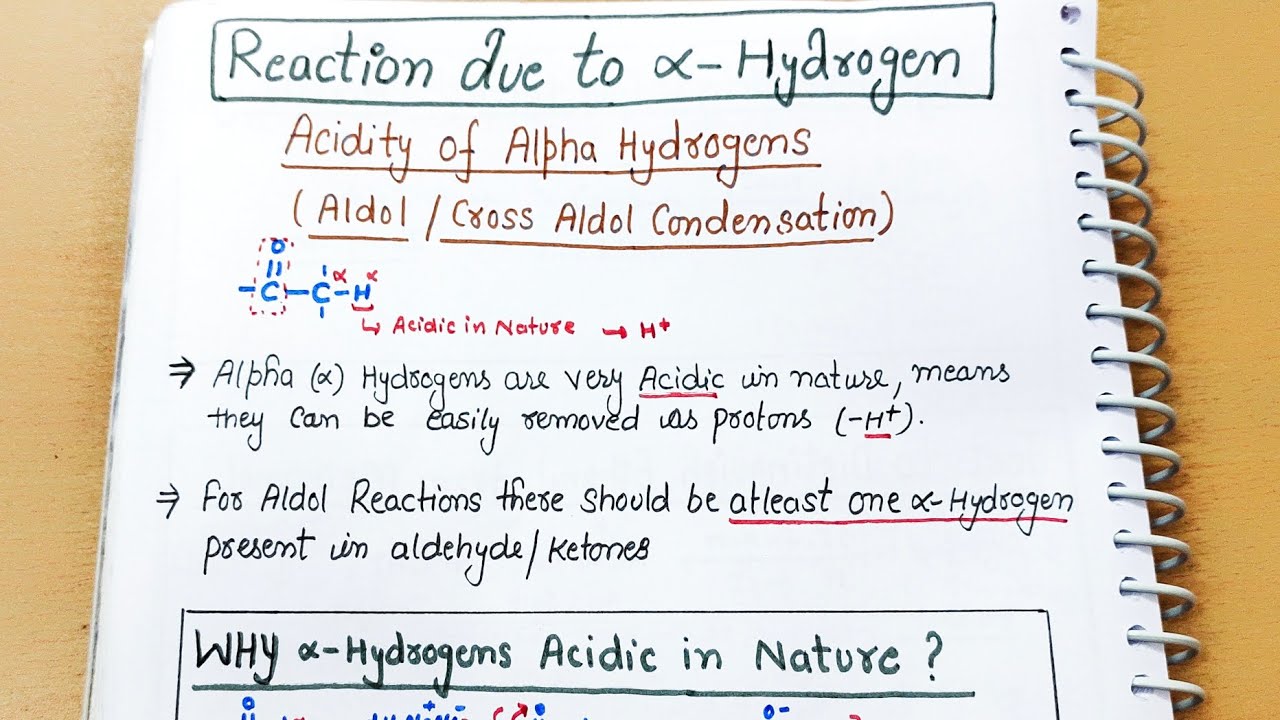 Reaction due to α-Hydrogen
Acidity of Alpha Hydrogens
(Aldol / Cross Aldol Condensation)
O
α α
-C-C-H
↳ Acidic in Nature → H+
⇒ Alpha (α) Hydrogens are very Acidic in nature, means
they can be easily removed as protons (-H+).
⇒ For Aldol Reactions there should be atleast one α-Hydrogen
present in aldehyde/Ketones
WHY α-Hydrogens Acidic in Nature ?